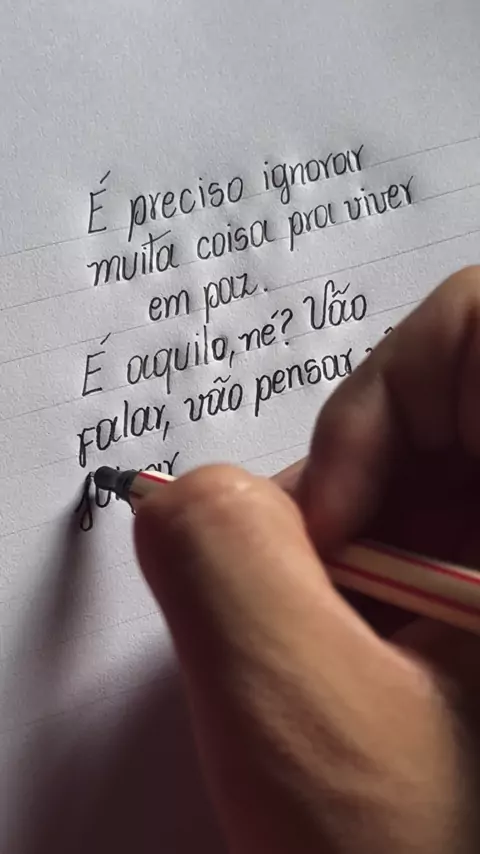 É preciso ignorar
muita coisa pra viver
em paz.
É aquilo, né? Vão
falar, vão pensar